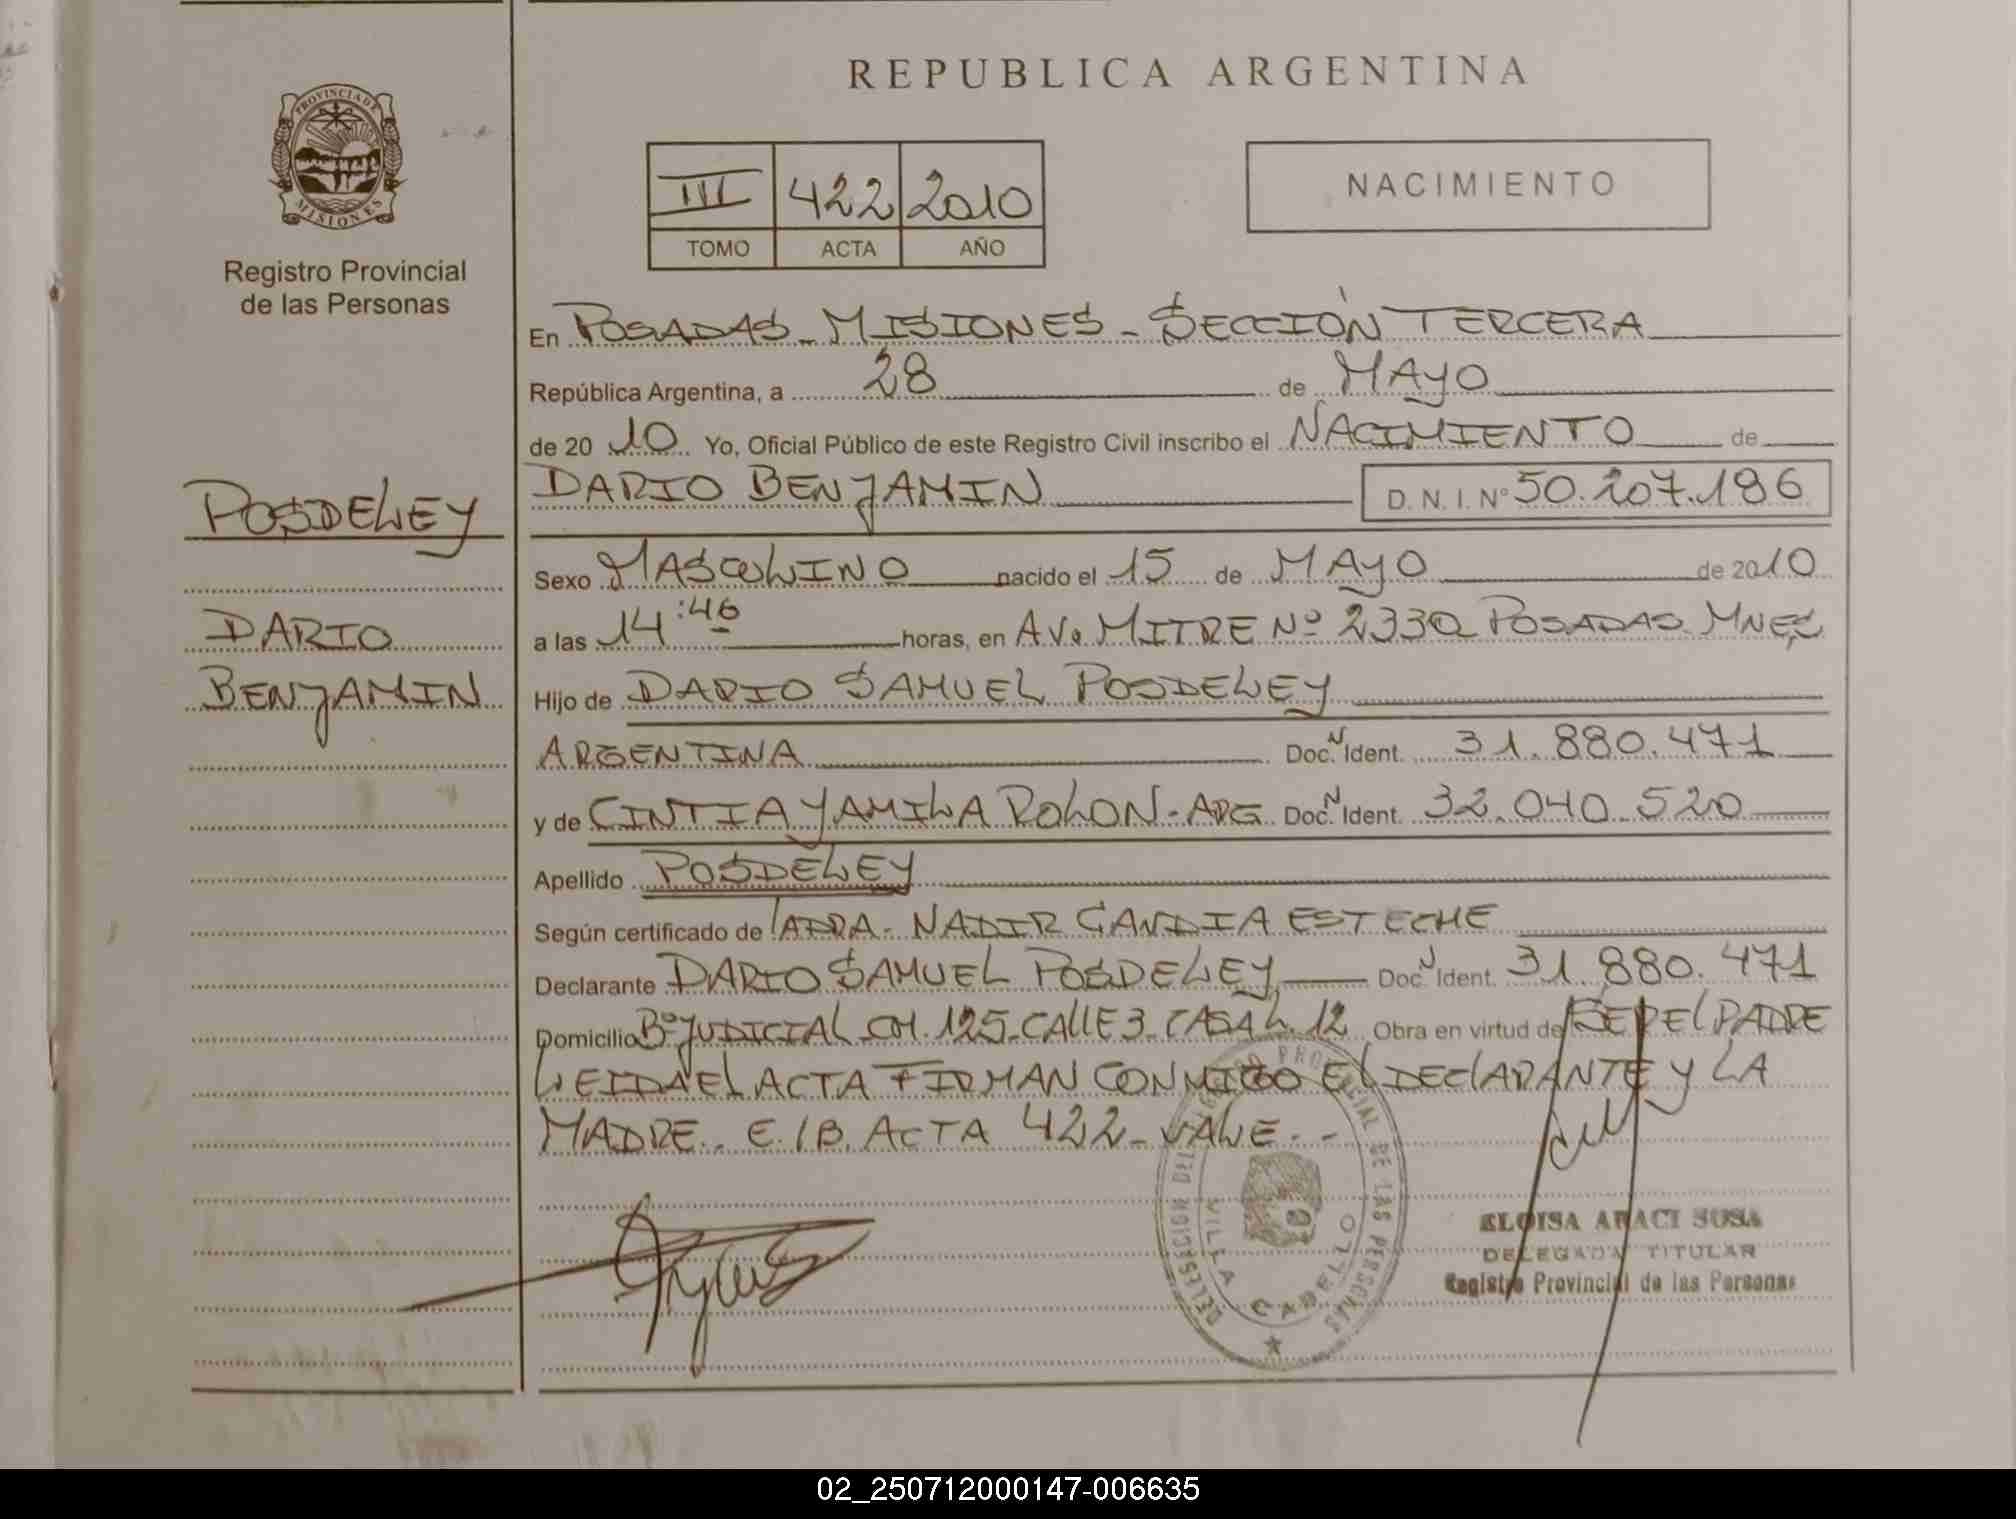 REPUBLICA ARGENTINA
PROVINCIA DE
MISIONES
Registro Provincial
de las Personas
III 422 2010
TOMO ACTA AÑO
NACIMIENTO
En POSADAS - MISIONES - SECCIÓN TERCERA
República Argentina, a 28 de MAYO
de 2010 Yo, Oficial Público de este Registro Civil inscribo el NACIMIENTO de
DARIO BENJAMIN D. N. I. Nº 50.207.186
POSDELEY
DARIO
BENJAMIN
Sexo MASCULINO nacido el 15 de MAYO de 2010
a las 14:46 horas, en AV. MITRE Nº 2330 POSADAS MNES
Hijo de DARIO SAMUEL POSDELEY
ARGENTINA Doc. N Ident. 31.880.471
y de CINTIA YAMILA ROLON - ARG Doc. N Ident. 32.040.520
Apellido POSDELEY
Según certificado de NADIR CANDIA ESTECHE
Declarante DARIO SAMUEL POSDELEY Doc. N Ident. 31.880.471
Domicilio Bº JUDICIAL CH. 125 - CALLE 3 - CASA L. 12 Obra en virtud de SER EL PADRE
LEIDA EL ACTA FIRMAN CONMIGO EL DECLARANTE Y LA
MADRE. E/B. ACTA 422 - VALE. -
DEL REGISTRO PROVINCIAL DE LAS PERSONAS
VILLA CABELLO
ELOISA ARACI SOSA
DELEGADA TITULAR
Registro Provincial de las Personas
02_250712000147-006635